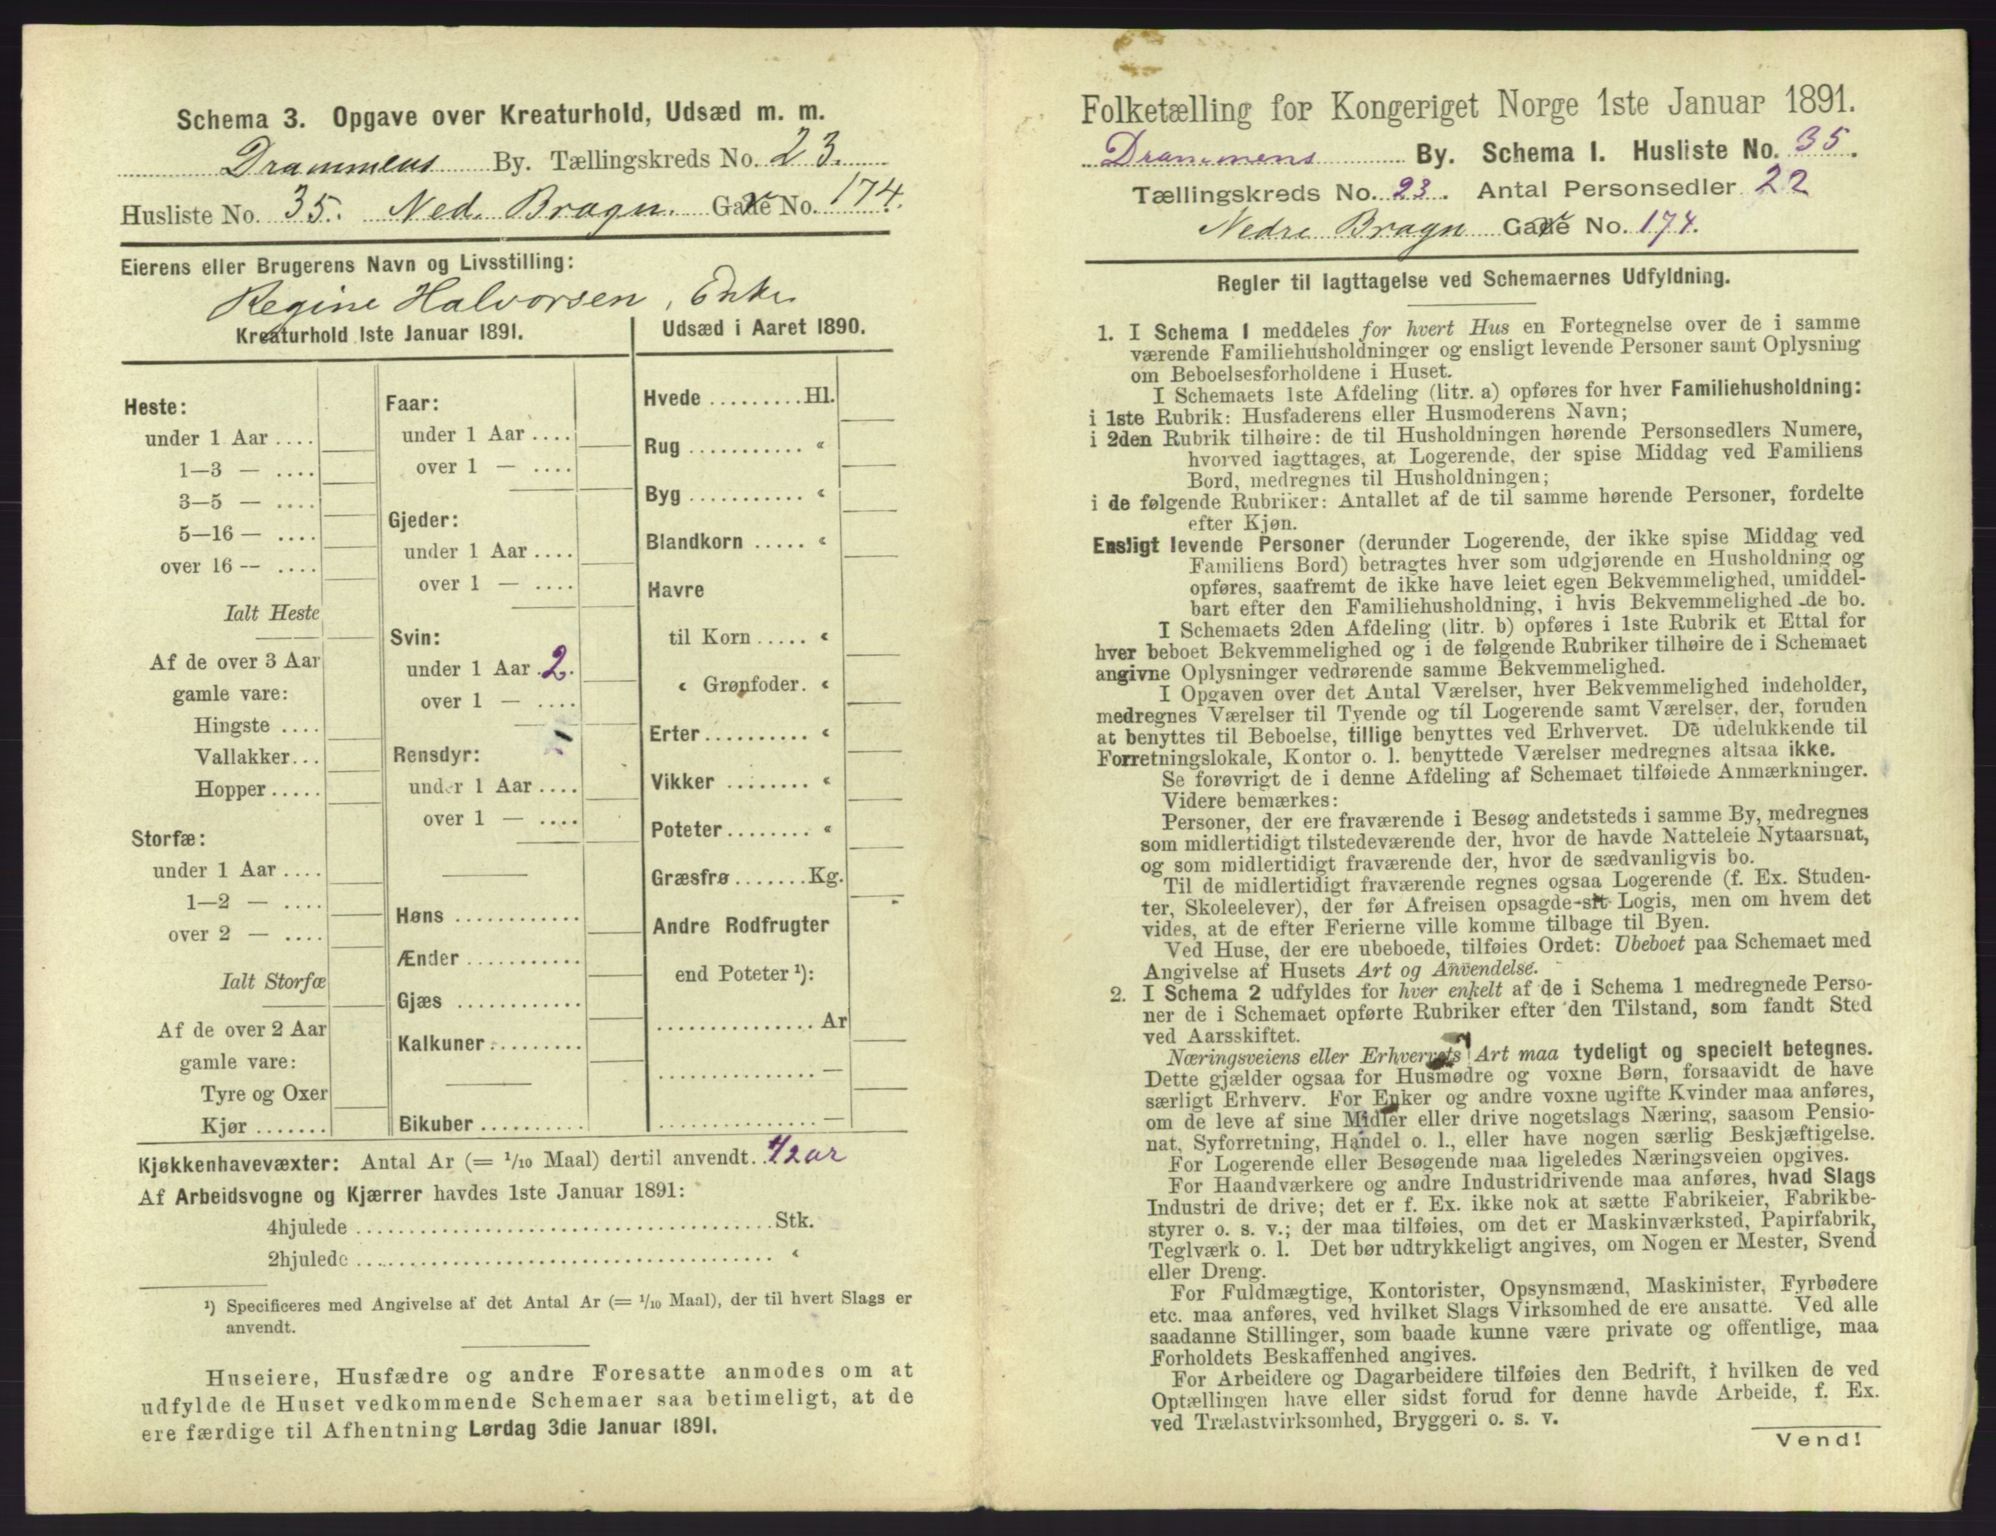 Schema 3. Opgave over Kreaturhold, Udsæd m. m.
Drammens By. Tællingskreds No. 23.
Husliste No. 35. Ned. Bragn. Gade No. 174.
Eierens eller Brugerens Navn og Livsstilling:
Regine Halvorsen, Enke
Kreaturhold 1ste Januar 1891.
Heste:
under 1 Aar ....
1—3 — ....
3—5 — ....
5—16 — ....
over 16 — ....
Ialt Heste
Af de over 3 Aar
gamle vare:
Hingste ....
Vallakker...
Hopper.....
Storfæ:
under 1 Aar ....
1—2 — ....
over 2 — ....
Ialt Storfæ
Af de over 2 Aar
gamle vare:
Tyre og Oxer
Kjør .......
Faar:
under 1 Aar ....
over 1 — ....
Gjeder:
under 1 Aar ....
over 1 — ....
Svin:
under 1 Aar 2.
over 1 — ....
Rensdyr:
under 1 Aar ....
over 1 — ....
Høns ............
Ænder ...........
Gjæs ............
Kalkuner.........
Bikuber ..........
Udsæd i Aaret 1890.
Hvede .........Hl.
Rug ........... «
Byg ........... «
Blandkorn ..... «
Havre
til Korn ..... «
« Grønfoder. «
Erter.......... «
Vikker ........ «
Poteter........ «
Græsfrø.......Kg.
Andre Rodfrugter
end Poteter ¹):
............... Ar
............... —
............... —
Kjøkkenhavevæxter: Antal Ar (= 1/10 Maal) dertil anvendt. 1/2 ar
Af Arbeidsvogne og Kjærrer havdes 1ste Januar 1891:
4hjulede ........................................Stk.
2hjulede........................................ «
¹) Specificeres med Angivelse af det Antal Ar (= 1/10 Maal), der til hvert Slags er
anvendt.
Huseiere, Husfædre og andre Foresatte anmodes om at
udfylde de Huset vedkommende Schemaer saa betimeligt, at de
ere færdige til Afhentning Lørdag 3die Januar 1891.
Folketælling for Kongeriget Norge 1ste Januar 1891.
Drammens By. Schema 1. Husliste No. 35.
Tællingskreds No. 23. Antal Personsedler 22
Nedre Bragn Gade No. 174.
Regler til Iagttagelse ved Schemaernes Udfyldning.
1. I Schema 1 meddeles for hvert Hus en Fortegnelse over de i samme
værende Familiehusholdninger og ensligt levende Personer samt Oplysning
om Beboelsesforholdene i Huset.
I Schemaets 1ste Afdeling (litr. a) opføres for hver Familiehusholdning:
i 1ste Rubrik: Husfaderens eller Husmoderens Navn;
i 2den Rubrik tilhøire: de til Husholdningen hørende Personsedlers Numere,
hvorved iagttages, at Logerende, der spise Middag ved Familiens
Bord, medregnes til Husholdningen;
i de følgende Rubriker: Antallet af de til samme hørende Personer, fordelte
efter Kjøn.
Ensligt levende Personer (derunder Logerende, der ikke spise Middag ved
Familiens Bord) betragtes hver som udgjørende en Husholdning og
opføres, saafremt de ikke have leiet egen Bekvemmelighed, umiddel-
bart efter den Familiehusholdning, i hvis Bekvemmelighed de bo.
I Schemaets 2den Afdeling (litr. b) opføres i 1ste Rubrik et Ettal for
hver beboet Bekvemmelighed og i de følgende Rubriker tilhøire de i Schemaet
angivne Oplysninger vedrørende samme Bekvemmelighed.
I Opgaven over det Antal Værelser, hver Bekvemmelighed indeholder,
medregnes Værelser til Tyende og til Logerende samt Værelser, der, foruden
at benyttes til Beboelse, tillige benyttes ved Erhvervet. De udelukkende til
Forretningslokale, Kontor o. l. benyttede Værelser medregnes altsaa ikke.
Se forøvrigt de i denne Afdeling af Schemaet tilføiede Anmærkninger.
Videre bemærkes:
Personer, der ere fraværende i Besøg andetsteds i samme By, medregnes
som midlertidigt tilstedeværende der, hvor de havde Natteleie Nytaarsnat,
og som midlertidigt fraværende der, hvor de sædvanligvis bo.
Til de midlertidigt fraværende regnes ogsaa Logerende (f. Ex. Studen-
ter, Skoleelever), der før Afreisen opsagde sit Logis, men om hvem det
vides, at de efter Ferierne ville komme tilbage til Byen.
Ved Huse, der ere ubeboede, tilføies Ordet: Ubeboet paa Schemaet med
Angivelse af Husets Art og Anvendelse.
2. I Schema 2 udfyldes for hver enkelt af de i Schema 1 medregnede Perso-
ner de i Schemaet opførte Rubriker efter den Tilstand, som fandt Sted
ved Aarsskiftet.
Næringsveiens eller Erhvervets Art maa tydeligt og specielt betegnes.
Dette gjælder ogsaa for Husmødre og voxne Børn, forsaavidt de have
særligt Erhverv. For Enker og andre voxne ugifte Kvinder maa anføres,
om de leve af sine Midler eller drive nogetslags Næring, saasom Pensio-
nat, Syforretning, Handel o. l., eller have nogen særlig Beskjæftigelse.
For Logerende eller Besøgende maa ligeledes Næringsveien opgives.
For Haandværkere og andre Industridrivende maa anføres, hvad Slags
Industri de drive; det er f. Ex. ikke nok at sætte Fabrikeier, Fabrikbe-
styrer o. s. v.; der maa tilføies, om det er Maskinværksted, Papirfabrik,
Teglværk o. l. Det bør udtrykkeligt angives, om Nogen er Mester, Svend
eller Dreng.
For Fuldmægtige, Kontorister, Opsynsmænd, Maskinister, Fyrbødere
etc. maa anføres, ved hvilket Slags Virksomhed de ere ansatte. Ved alle
saadanne Stillinger, som baade kunne være private og offentlige, maa
Forholdets Beskaffenhed angives.
For Arbeidere og Dagarbeidere tilføies den Bedrift, i hvilken de ved
Optællingen have eller sidst forud for denne havde Arbeide, f. Ex.
ved Trælastvirksomhed, Bryggeri o. s. v.
Vend!